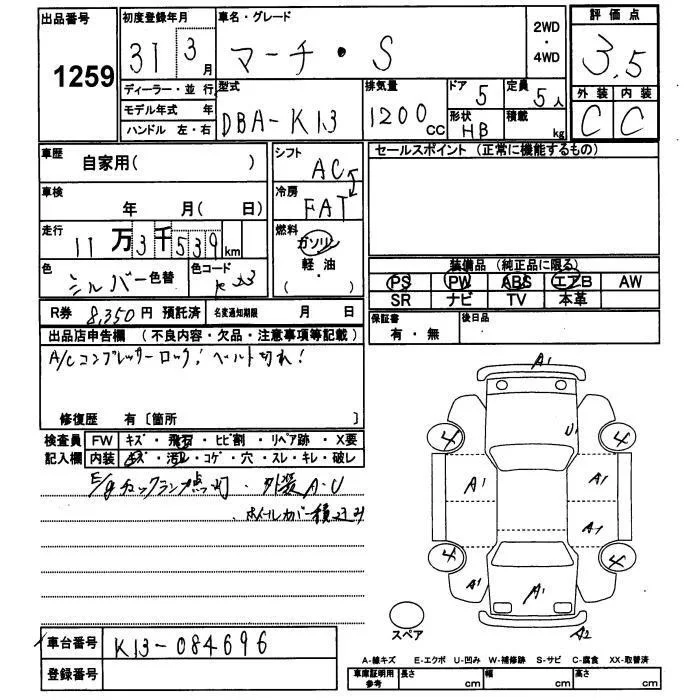 出品番号 1259
初度登録年月 31 3月
車名・グレード マーチ・S
2WD ・ 4WD
評価点 3.5
ディーラー・並行
モデル年式 年
ハンドル 左・右
型式 DBA-K13
排気量 1200 CC
ドア 5
定員 5人
形状 HB
積載 kg
外装 C 内装 C
車歴 自家用( )
シフト AC
セールスポイント (正常に機能するもの)
車検 年 月( 日)
冷房 FAT
走行 11万3千539km
燃料 ガソリン 軽・油 ( )
色 シルバー 色替
色コード K23
装備品 (純正品に限る)
PS PW ABS エアB AW
SR ナビ TV 本革
R券 8,350円 預託済
名変通知期限 月 日
保証書 有・無
後日品
出品店申告欄 (不良内容・欠品・注意事項等記載)
A/Cコンプレッサーロック! ベルト切れ!
修復歴 有〔箇所 〕
検査員記入欄
FW キズ・飛石・ヒビ割・リペア跡・X要
内装 キズ・汚レ・コゲ・穴・スレ・キレ・破レ
E/gチェックランプ点灯・外装A・U
・ホイールカバー積込み
A1
4 U1 4
A1 A1
A1
4 4
A1 A1 A1
A2
スペア
車台番号 K13-084696
登録番号
A-線キズ E-エクボ U-凹み W-補修跡 S-サビ C-腐食 XX-取替済
車庫証明用参考 長さ cm 幅 cm 高さ cm